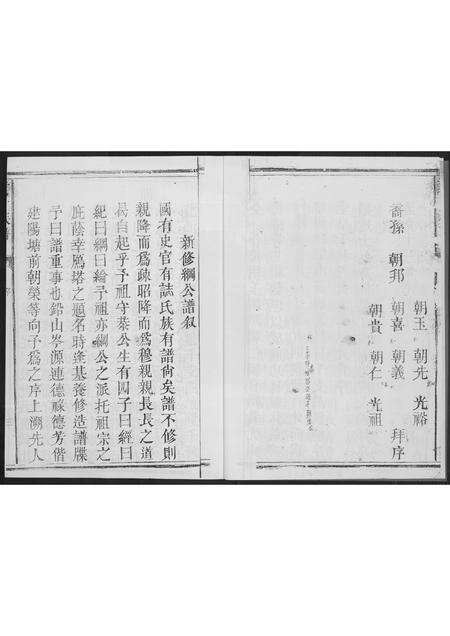 朝玉 朝先 光裕
裔孫 朝邦 朝喜 朝義 拜序
朝貴 朝仁 光祖
新修綱公譜叙
國有史官有誌氏族有譜尚矣譜不修則
親降而為疎昭降而為穆親親長長之道
曷自起乎予祖守恭公生有四子曰經曰
紀曰綱曰綸予祖亦綱公之派托祖宗之
庇蔭幸鴈塔之題名時逢基養修造譜牒
予曰譜重事也鉛山岑源連德祿德芳偕
建陽塘前朝榮等向予為之序上溯先人